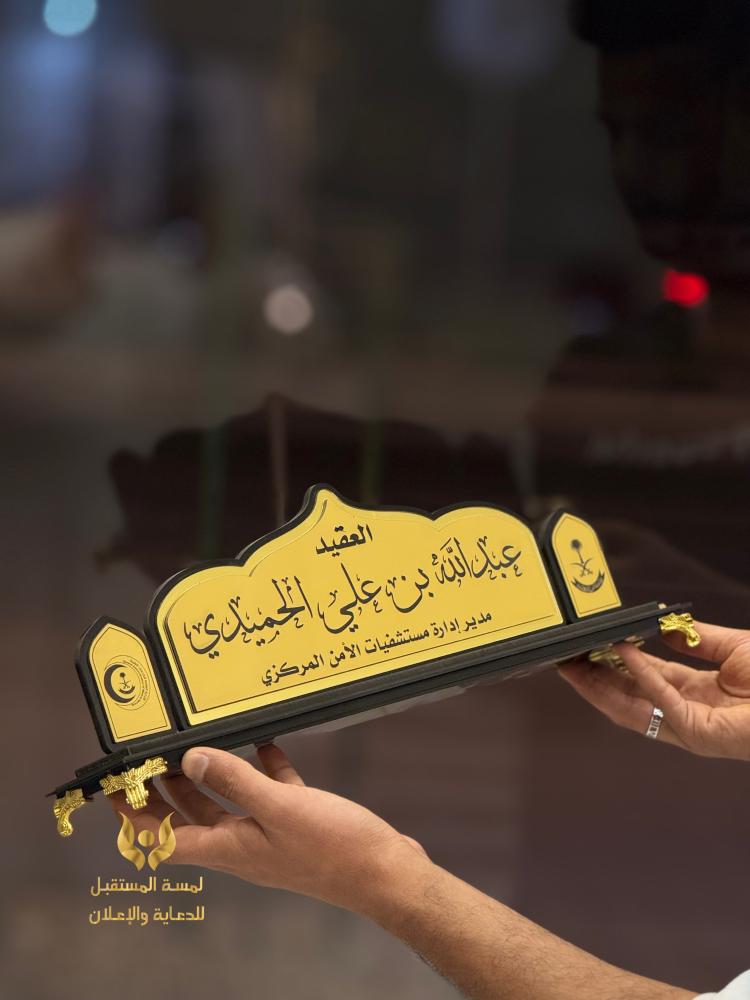 العقيد
عبدالله بن علي الحميدي
مدير إدارة مستشفيات الأمن المركزي
لمسة المستقبل
للدعاية والإعلان